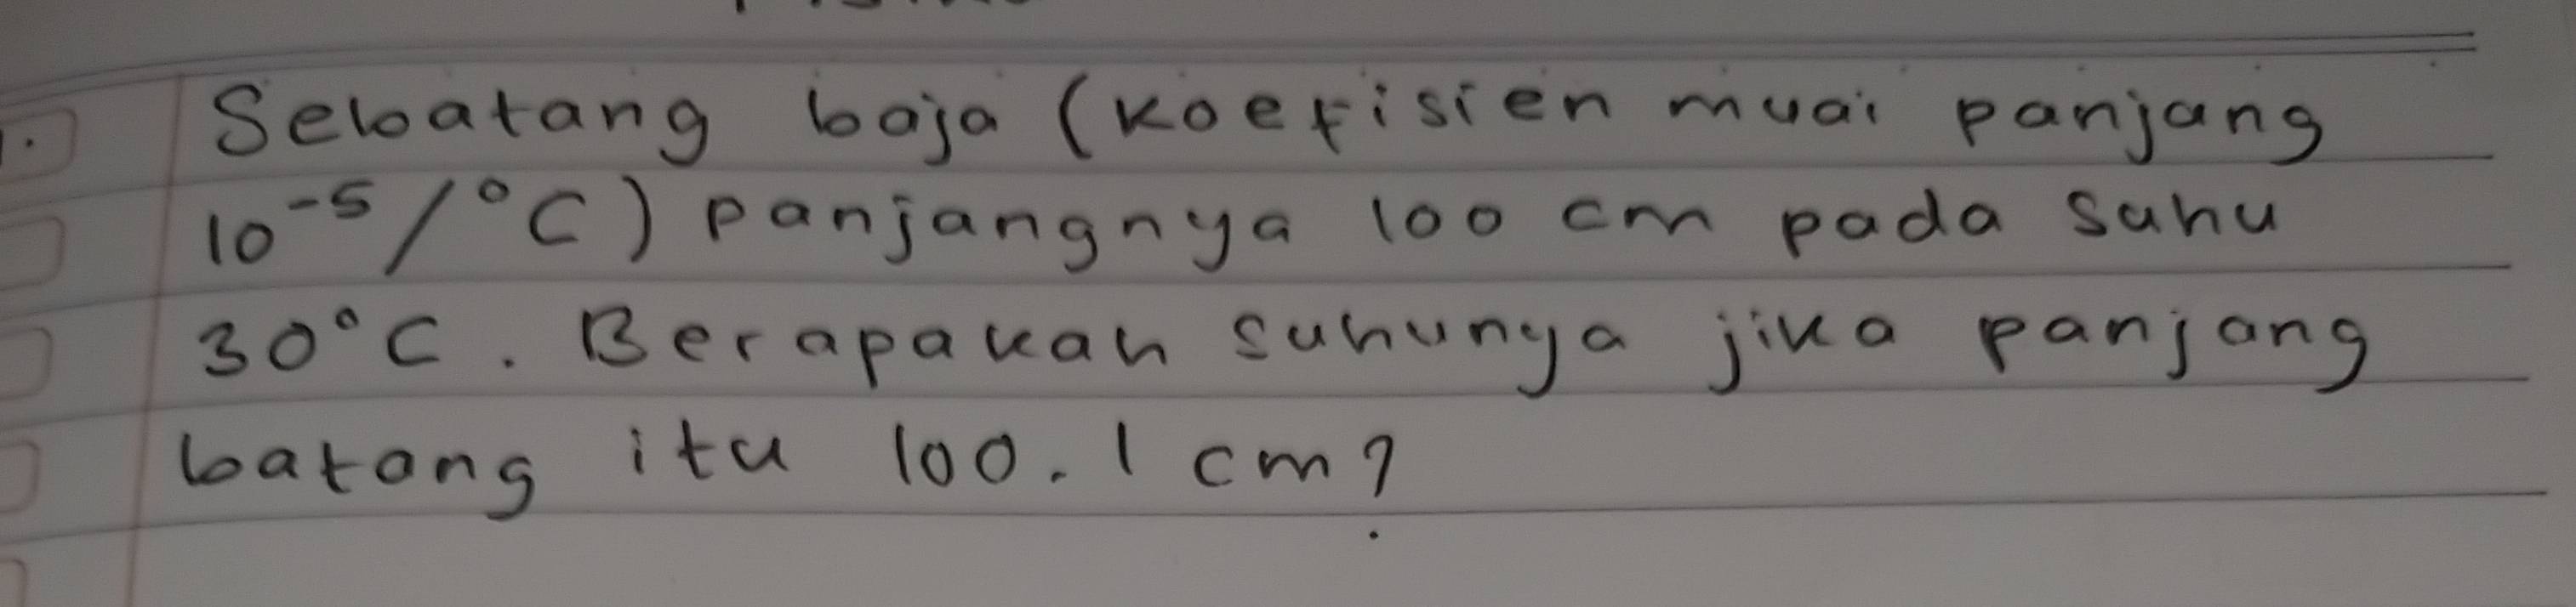 1. Sebatang baja (koefisien muai panjang
10⁻⁵/°C) panjangnya 100 cm pada suhu
30°C. Berapakah suhunya jika panjang
batang itu 100.1 cm?